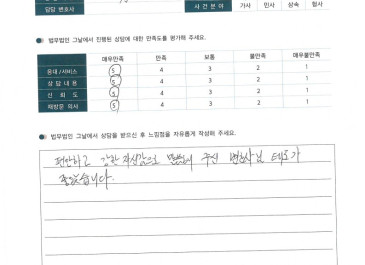 담당 변호사 사건분야 가사 민사 상속 형사
법무법인 그날에서 진행된 상담에 대한 만족도를 평가해 주세요.
매우만족 만족 보통 불만족 매우불만족
응대/서비스 5 4 3 2 1
상담내용 5 4 3 2 1
신뢰도 5 4 3 2 1
재방문 의사 5 4 3 2 1
법무법인 그날에서 상담을 받으신 후 느낌점을 자유롭게 작성해 주세요.
편안하고 강한 자신감으로 말씀해 주신 변호사님 태도가
좋았습니다.